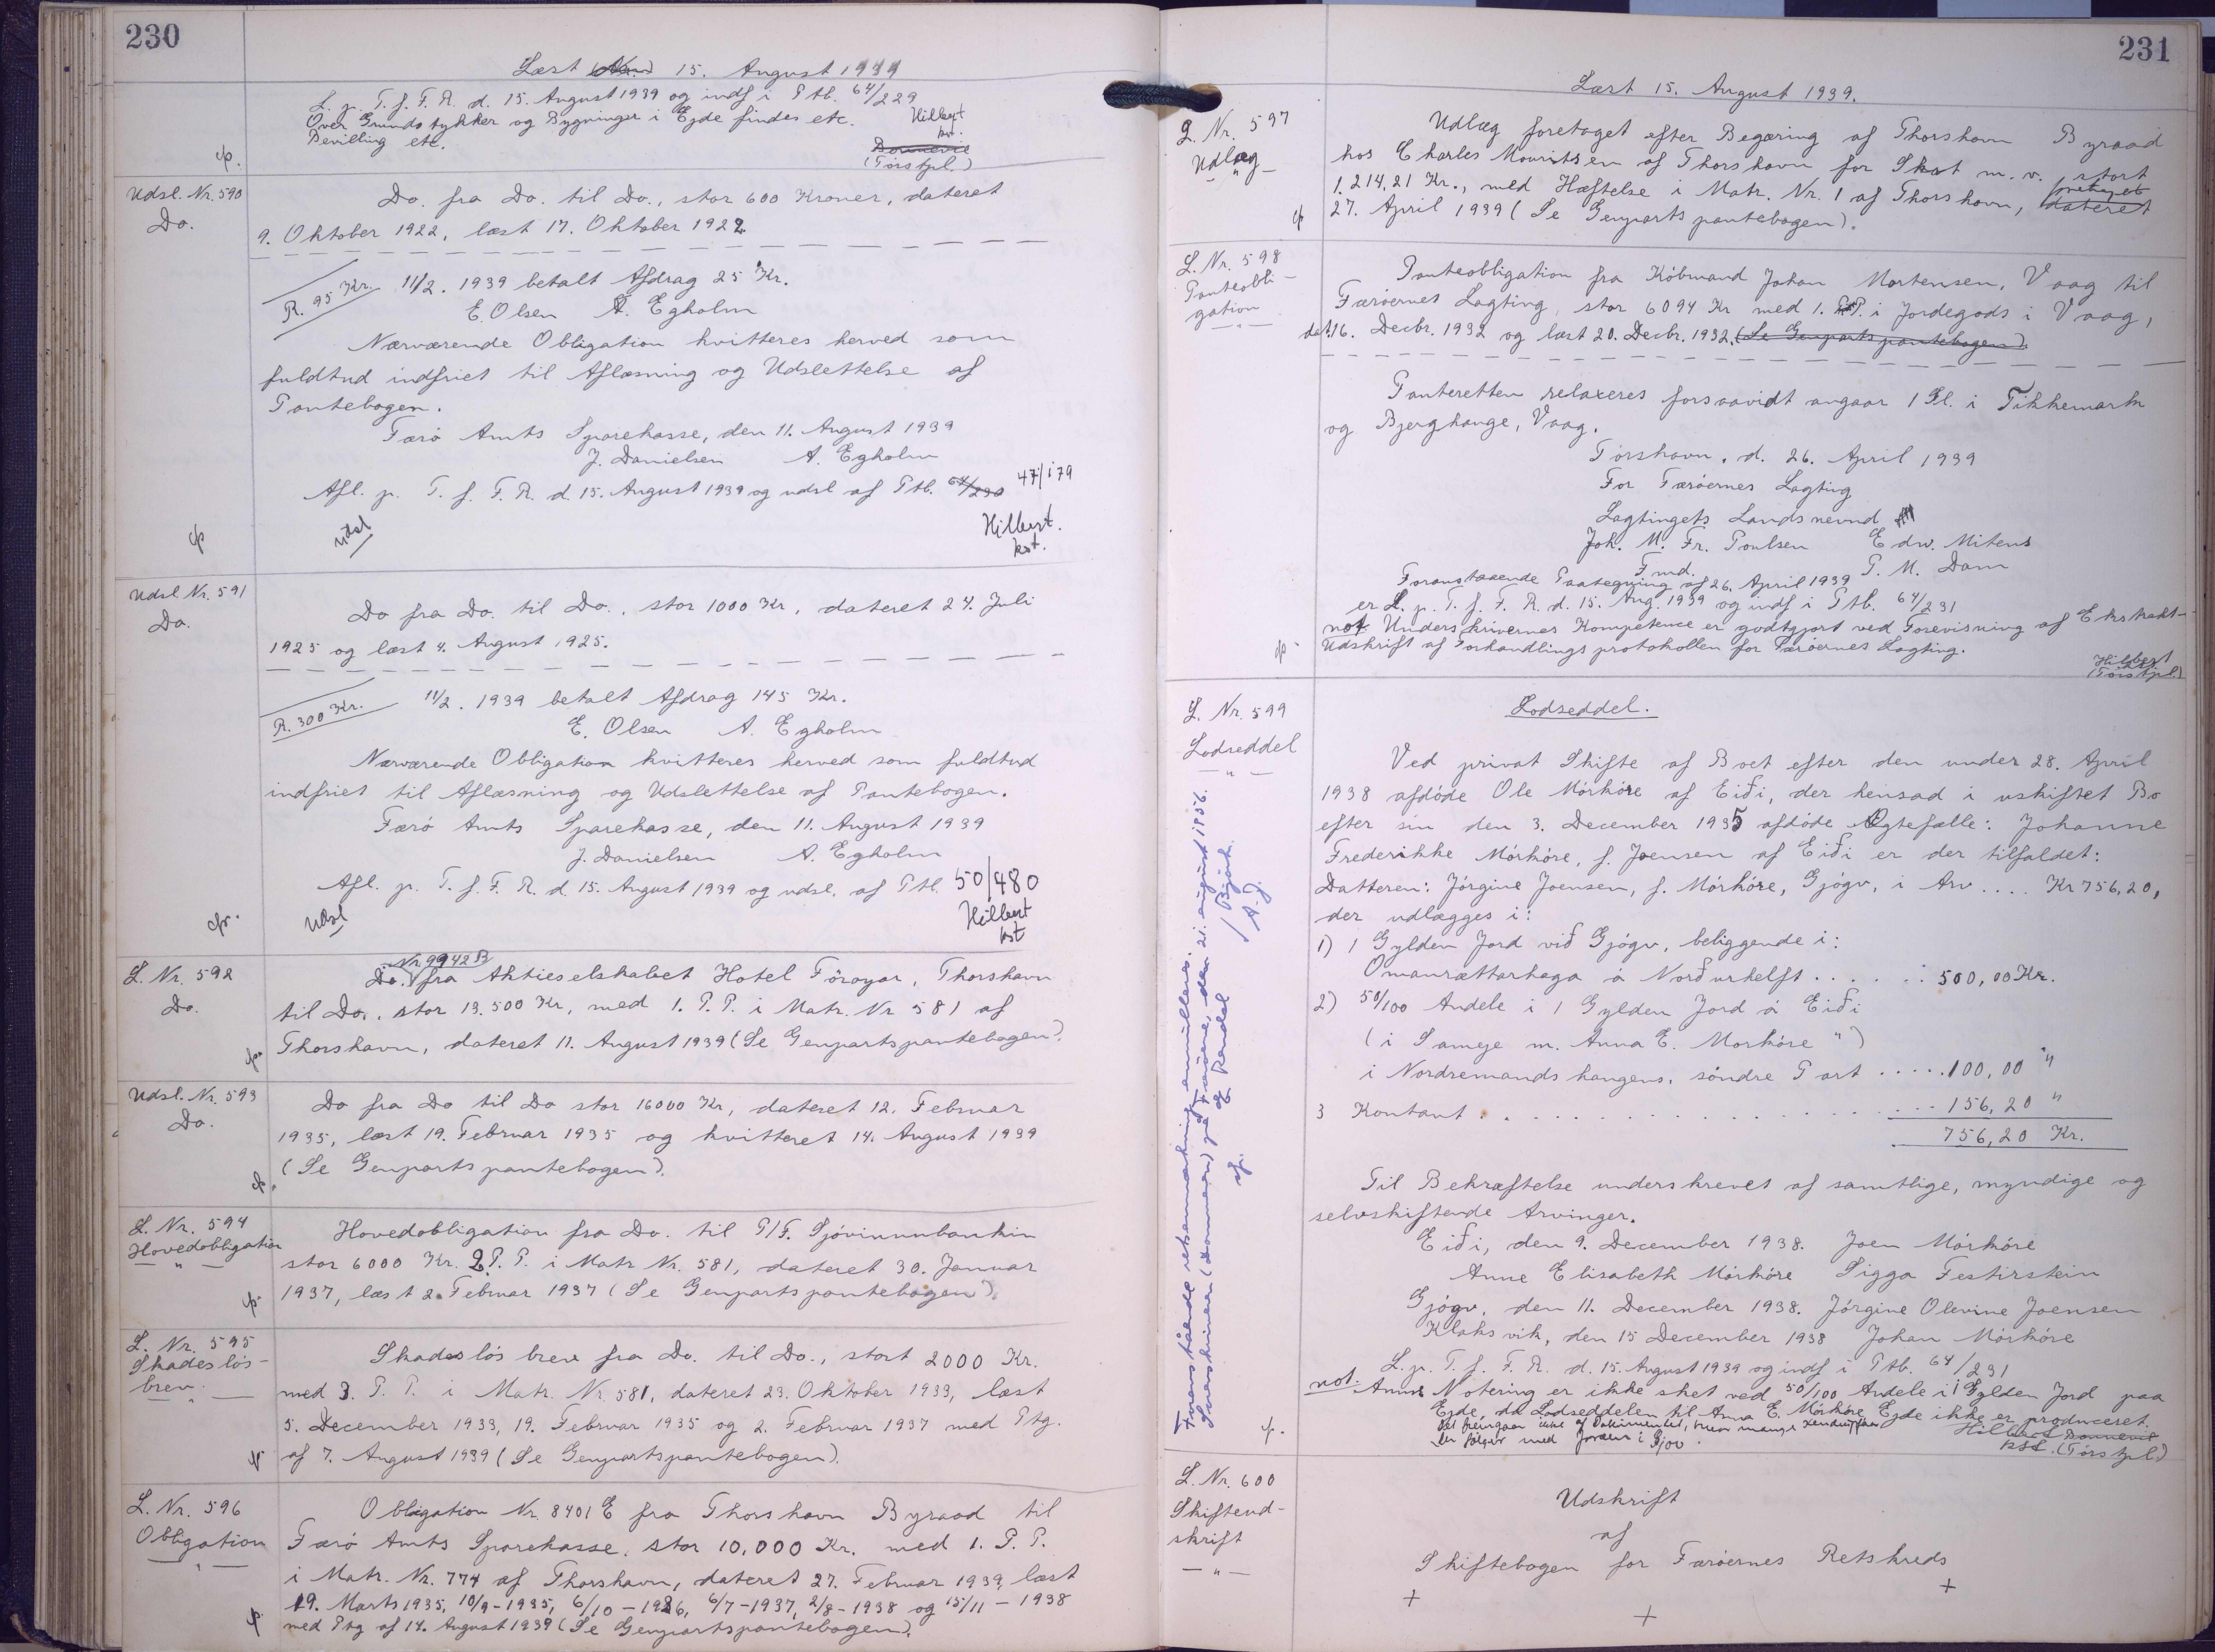 230
Læst 15. August 1939
L. p. T. f. F. R. d. 15. August 1939 og indf i Ptb. 64/229
Over Grundstykker og Bygninger i Ejde findes etc.
Bevilling etc.
Hilbert
kst.
(Tórs fpl.)
cp.
Udsl. Nr. 590
Do.
Do. fra Do. til Do., stor 600 Kroner, dateret
9. Oktober 1922, læst 17. Oktober 1922
R. 95 Kr. 11/2. 1939 betalt Afdrag 25 Kr.
E. Olsen A. Egholm
Nærværende Obligation kvitteres herved som
fuldtud indfriet til Aflæsning og Udslettelse af
Pantebogen.
Færø Amts Sparekasse, den 11. August 1939
J. Danielsen A. Egholm
Afl. p. T. f. F. R. d. 15. August 1939 og udsl af Ptb. 64/230 47/179
udsl
Hilbert.
kst.
cp
Udsl Nr. 591
Do.
Do fra Do. til Do., stor 1000 Kr, dateret 24. Juli
1925 og læst 4. August 1925.
R. 300 Kr. 11/2. 1939 betalt Afdrag 145 Kr.
E. Olsen A. Egholm
Nærværende Obligation kvitteres herved som fuldtud
indfriet til Aflæsning og Udslettelse af Pantebogen.
Færø Amts Sparekasse, den 11. August 1939
J. Danielsen A. Egholm
Afl. p. T. f. F. R. d. 15. August 1939 og udsl. af Ptb. 50/480
udsl
Hilbert
kst
cp.
L. Nr. 592
Do.
Nr. 9942 B
Do. fra Aktieselskabet Hotel Föroyar, Thorshavn
til Do., stor 13.500 Kr, med 1. P. P. i Matr. Nr 581 af
Thorshavn, dateret 11. August 1939 (Se Genpartspantebogen).
cp.
Udsl. Nr. 593
Do.
Do fra Do til Do stor 16000 Kr, dateret 12. Februar
1935, læst 19. Februar 1935 og kvitteret 14. August 1939
(Se Genpartspantebogen).
cp.
L. Nr. 594
Hovedobligation
— " —
Hovedobligation fra Do. til P/F. Sjóvinnubankin
stor 6000 Kr. 2 P. P. i Matr Nr. 581, dateret 30. Januar
1937, læst 2. Februar 1937 (Se Genpartspantebogen).
cp.
L. Nr. 595
Skadesløs-
brev.
— " —
Skadesløsbrev fra Do. til Do., stort 2000 Kr.
med 3. P. P. i Matr. Nr. 581, dateret 23. Oktober 1933, læst
5. December 1933, 19. Februar 1935 og 2. Februar 1937 med Ptg.
af 7. August 1939 (Se Genpartspantebogen).
cp
L. Nr. 596
Obligation
— " —
Obligation Nr. 8401 E fra Thorshavn Byraad til
Færø Amts Sparekasse, stor 10,000 Kr. med 1. P. P.
i Matr. Nr. 774 af Thorshavn, dateret 27. Februar 1939, læst
19. Marts 1935, 10/9 - 1935, 6/10 - 1936, 6/7 - 1937, 2/8 - 1938 og 15/11 - 1938
med Ptg af 14. August 1939 (Se Genpartspantebogen).
cp
231
Læst 15. August 1939.
L. Nr. 597
Udlæg
— " —
Udlæg foretaget efter Begæring af Thorshavn Byraad
hos Charles Mouritsen af Thorshavn for Skat m. v. stort
1.214,21 Kr., med Hæftelse i Matr. Nr. 1 af Thorshavn, foretaget dateret
27. April 1939 (Se Genpartspantebogen).
cp
L. Nr. 598
Panteobli-
gation
— " —
Panteobligation fra Købmand Johan Mortensen, Vaag til
Færøernes Lagting, stor 6094 Kr med 1. P. i Jordegods i Vaag,
dat. 16. Decbr. 1932 og læst 20. Decbr. 1932. (Se Genpartspantebogen).
Panteretten relaxeres forsaavidt angaar 1 Sl. i Tikkemark
og Bjerghauge, Vaag.
Tórshavn, d. 26. April 1939
For Færøernes Lagting
Lagtingets Landsnevnd
Joh. M. Fr. Poulsen Edw. Mitens
Fmd. P. M. Dam
Foranstaaende Paategning af 26. April 1939
er L. p. T. f. F. R. d. 15. Aug. 1939 og indf i Ptb. 64/231
not Underskrivernes Kompetence er godtgjort ved Forevisning af Ekstrakt-
Udskrift af Forhandlingsprotokollen for Færøernes Lagting.
Hilbert
kst.
(Tórs fpl.)
cp.
L. Nr. 599
Lodseddel
— " —
Lodseddel.
Ved privat Skifte af Boet efter den under 28. April
1938 afdøde Ole Mórkóre af Eiði, der hensad i uskiftet Bo
efter sin den 3. December 1935 afdøde Ægtefælle: Johanne
Frederikke Mórkóre, f. Joensen af Eiði er der tilfaldet:
Datteren: Jórgine Joensen, f. Mórkóre, Gjógv, i Arv .... Kr 756,20,
der udlægges i:
1) 1 Gylden Jord við Gjógv, beliggende i:
Omanrættarhaga á Norðurhelft . . . . . . 500,00 Kr.
2) 50/100 Andele i 1 Gylden Jord á Eiði
(i Sameje m. Anna E. Morkóre ")
i Nordremandshangens. søndre Part ..... 100,00 "
3 Kontant . . . . . . . . . . . . 156,20 "
756,20 Kr.
Til Bekræftelse underskrevet af samtlige, myndige og
selvskiftende Arvinger.
Eiði, den 9. December 1938. Joen Mórkóre
Anne Elisabeth Mórkóre Sigga Festirstein
Gjógv, den 11. December 1938. Jórgine Olevine Joensen
Klaksvik, den 15 December 1938 Johan Mórkóre
L. p. T. f. F. R. d. 15. August 1939 og indf i Ptb. 64/231
not. Anm: Notering er ikke sket ved 50/100 Andele i 1 Gylden Jord paa
Ejde, da Lodseddelen til Anna E. Mórkóre, Ejde ikke er produceret.
Det fremgaar ikke af Dokumentet, hvor mange
der følger med Jorden i Gjov.
Hilbert
kst. (Tórs fpl.)
cp.
Foranstående retsanmærkning annulleres.
Sorenskriveren (Dommeren) på Færøerne, den 21. august 1956.
E. Rendal / Bijørk.
A. J.
L. Nr. 600
Skifteud-
skrift
— " —
Udskrift
af
Skiftebogen for Færøernes Retskreds
+ + +